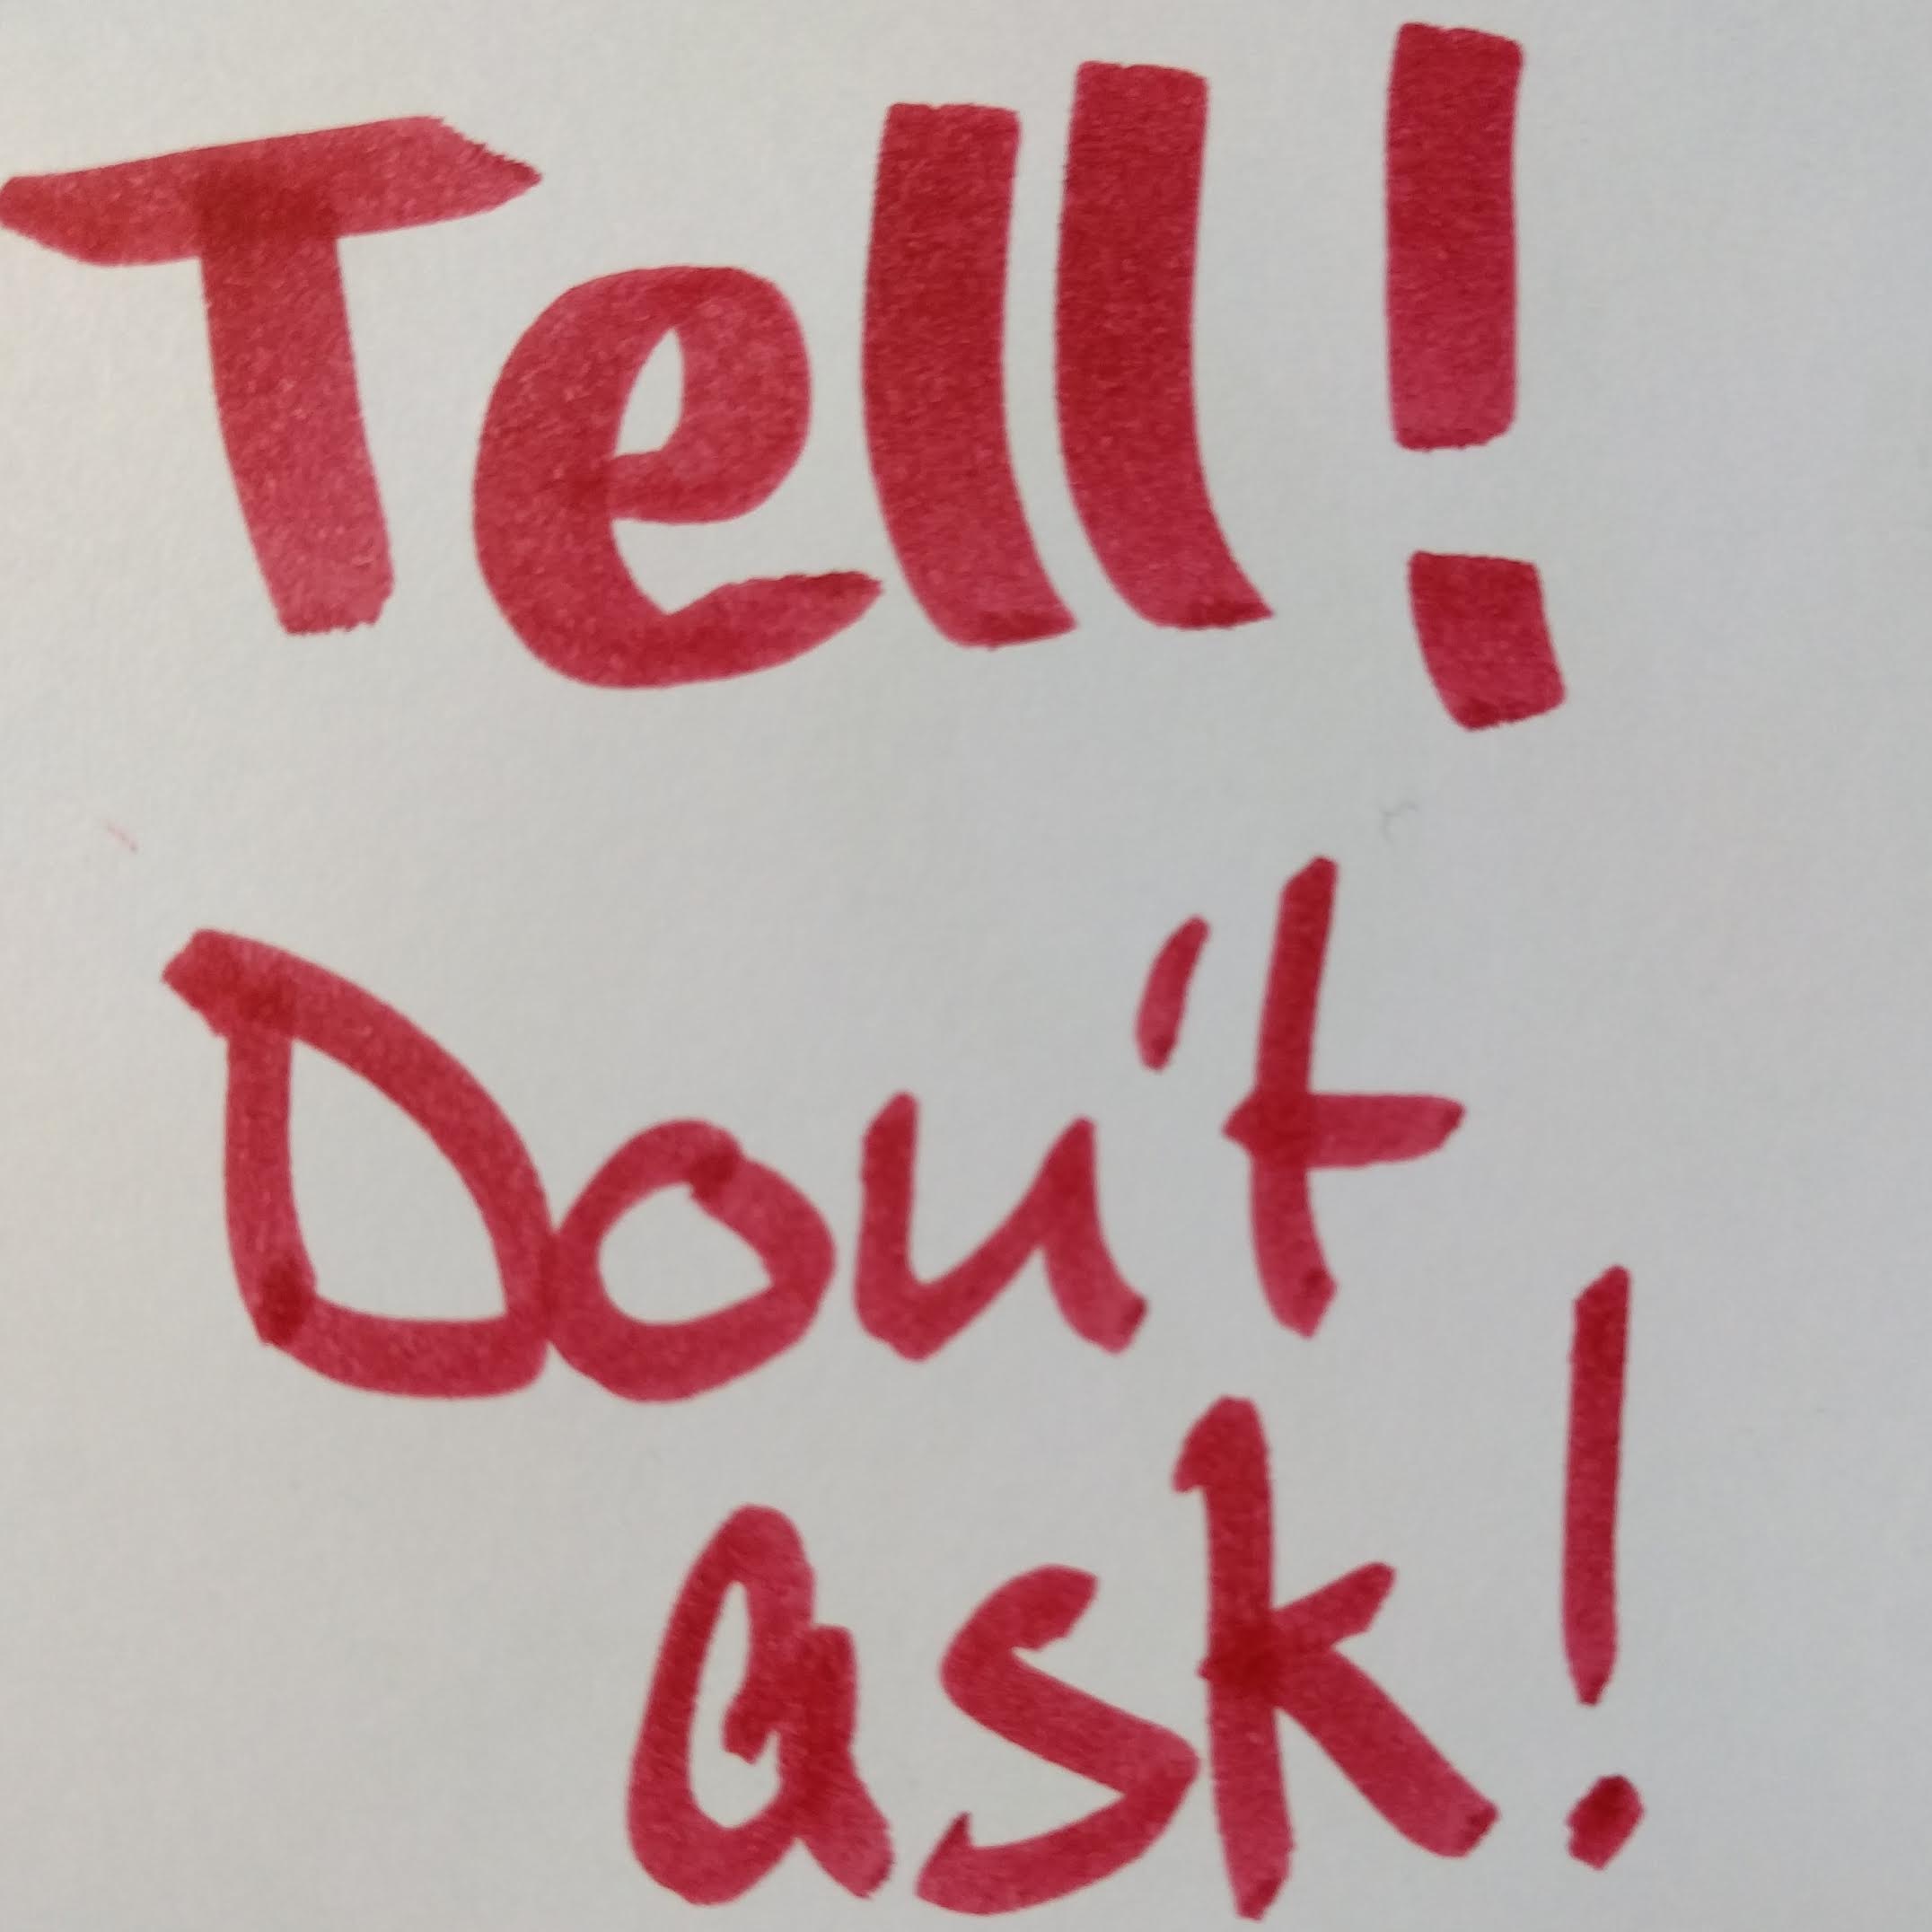 Tell!
Don't
ask!